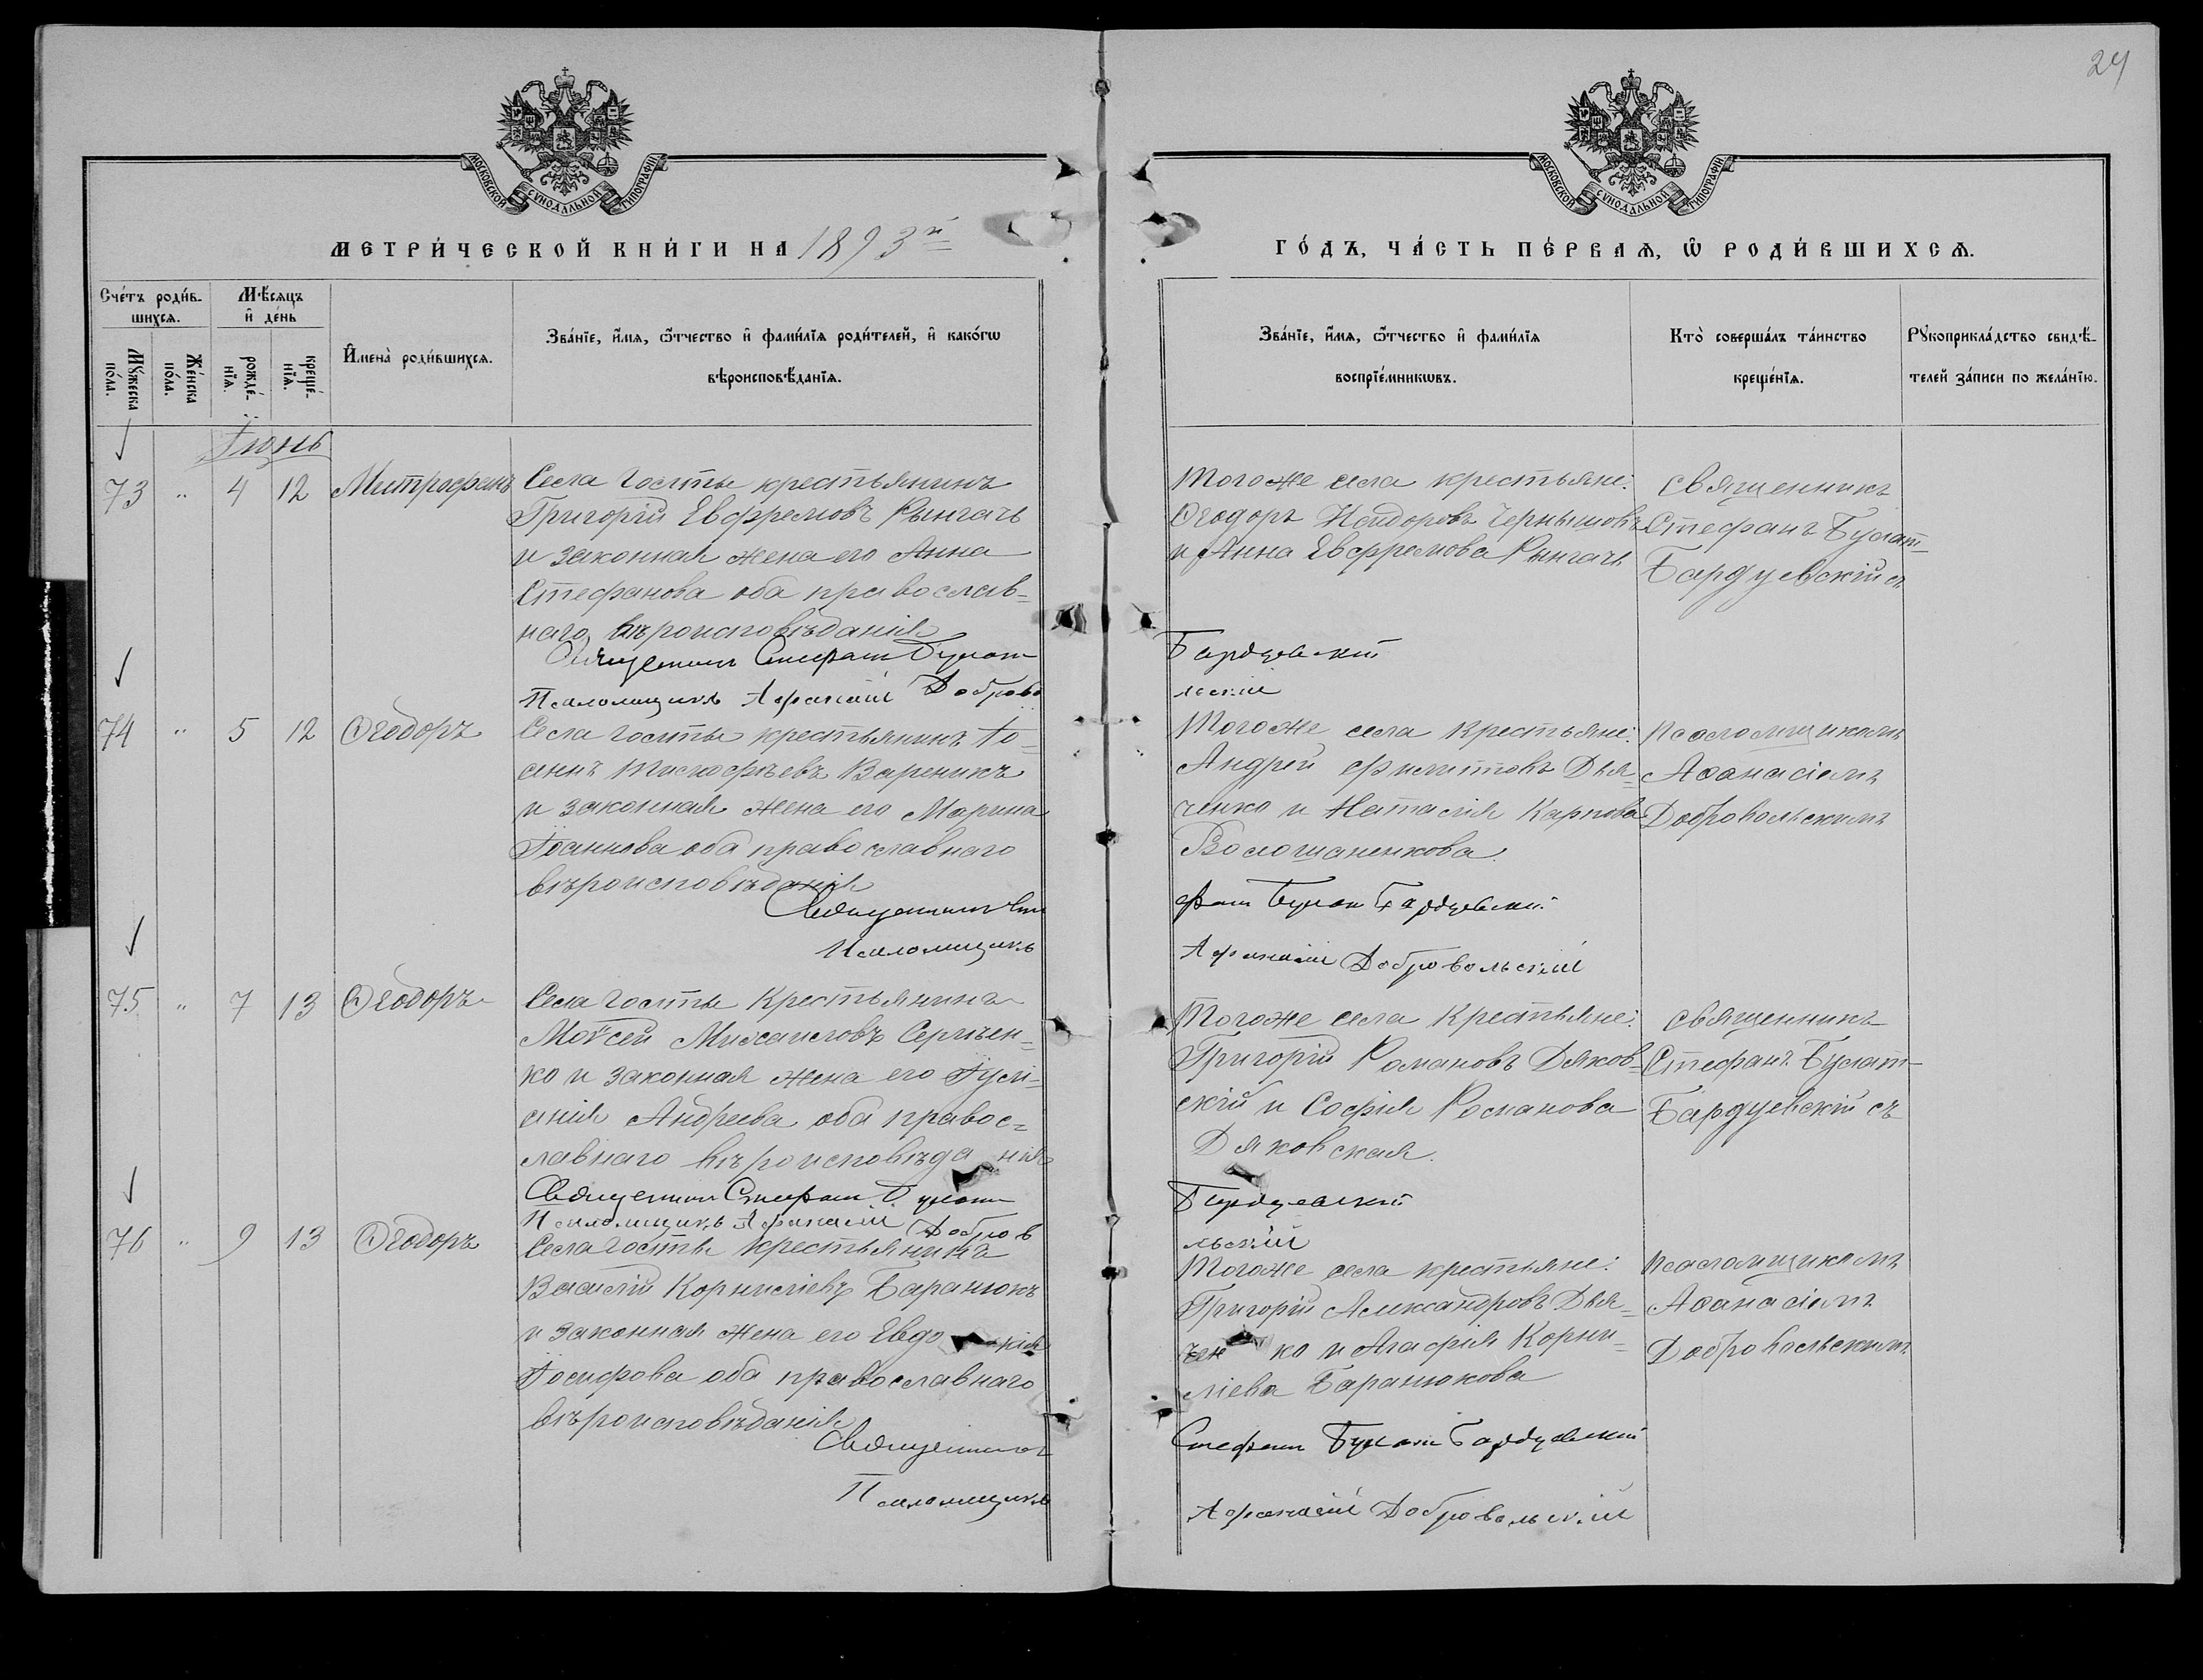 24
МОСКОВСКОЙ СѴНОДАЛЬНОЙ ТИПОГРАФІИ
МОСКОВСКОЙ СѴНОДАЛЬНОЙ ТИПОГРАФІИ
МЕТРИ́ЧЕСКОЙ КНИ́ГИ НА 1893й
ГО́ДЪ, ЧА́СТЬ ПЕ́РВАѦ, Ѽ РОДИ́ВШИХСѦ.
Сче́тъ роди́в-
шихсѧ.
Мꙋ́жеска по́ла.
Же́нска по́ла.
Мѣ́сѧцъ
и҆ де́нь
рожде́-
нїѧ.
креще́-
нїѧ.
И҆мена̀ роди́вшихсѧ.
Зва́нїе, и҆́мѧ, ѻ҆́тчество и҆ фами́лїѧ роди́телей, и҆ како́гѡ
вѣроисповѣ́данїѧ.
Зва́нїе, и҆́мѧ, ѻ҆́тчество и҆ фами́лїѧ
воспрїе́мникѡвъ.
Кто̀ соверша́лъ та́инство
креще́нїѧ.
Рꙋкоприкла́дство свидѣ́-
телей за́писи по жела́нїю.
Іюнь
73 " 4 12 Митрофанъ
Села Гостты крестьянинъ
Григорій Евфремовъ Рынгачъ
и законная жена его Анна
Стефанова оба православ-
наго вѣроисповѣданія
Тогоже села крестьяне:
Ѳеодоръ Чернышовъ
и Анна Евфремова Рынгачъ
Священникъ
Стефанъ Булат-
Бардуевскій съ
Священникъ Стефанъ Булатъ Бардуевскій
Псаломщикъ Афанасій Добровольскій
74 " 5 12 Ѳеодоръ
Села Гостты крестьянинъ Іо-
сифъ Вареникъ
и законная жена его Марина
Іоаннова оба православнаго
вѣроисповѣданія
Тогоже села крестьяне:
Андрей Филиповъ Дья-
ченко и Наталія Карпова
Волошаненкова.
Псаломщикомъ
Аѳанасіемъ
Добровольскимъ
Священникъ Стефанъ Булатъ Бардуевскій
Псаломщикъ Афанасій Добровольскій
75 " 7 13 Ѳеодоръ
Села Гостты крестьянинъ
Моѵсей Михаиловъ Сергѣен-
ко и законная жена его Іулі-
анія Андреева оба правос-
лавнаго вѣроисповѣданія
Тогоже села крестьяне:
Григорій Романовъ Дяков-
скій и Софія Романова
Дяковская.
Священникъ
Стефанъ Булат-
Бардуевскій съ
Священникъ Стефанъ Булатъ Бардуевскій
Псаломщикъ Афанасій Добровольскій
76 " 9 13 Ѳеодоръ
Села Гостты крестьянинъ
Василій Корниліевъ Баранюкъ
и законная жена его Евдокія
Іосифова оба православнаго
вѣроисповѣданія
Тогоже села крестьяне:
Григорій Александровъ Дья-
ченко и Агафія Корни-
ліева Баранюкова
Псаломщикомъ
Аѳанасіемъ
Добровольскимъ
Священникъ Стефанъ Булатъ Бардуевскій
Псаломщикъ Афанасій Добровольскій